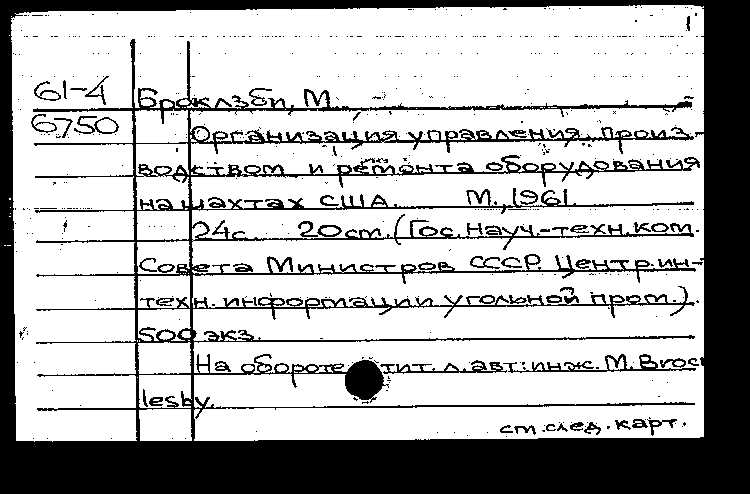 1
61-4 Броклзби, М.
6750 Организация управления произ-
водством и ремонта оборудования
на шахтах США. М., 1961.
24с. 20см. (Гос. Науч.-техн. ком.
Совета Министров СССР. Центр. ин-
техн. информации угольной пром.).
500 экз.
На обороте тит. л. авт: инж. М. Brock
lesby.
см. след. карт.